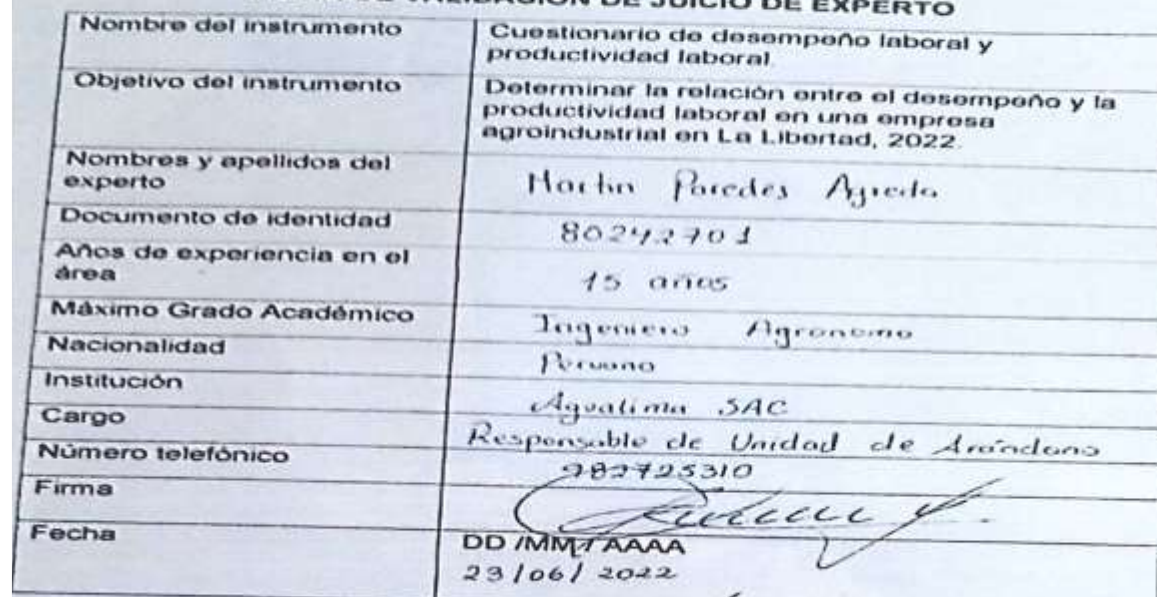 DE VALIDACIÓN DE JUICIO DE EXPERTO
Nombre del instrumento
Cuestionario de desempeño laboral y
productividad laboral.
Objetivo del instrumento
Determinar la relación entre el desempeño y la
productividad laboral en una empresa
agroindustrial en La Libertad, 2022.
Nombres y apellidos del
experto
Martin Paredes Agreda
Documento de identidad
80242701
Años de experiencia en el
área
15 años
Máximo Grado Académico
Ingeniero Agronomo
Nacionalidad
Peruano
Institución
Agualima SAC
Cargo
Responsable de Unidad de Arándano
Número telefónico
982725310
Firma
Fecha
DD /MM / AAAA
23/06/2022